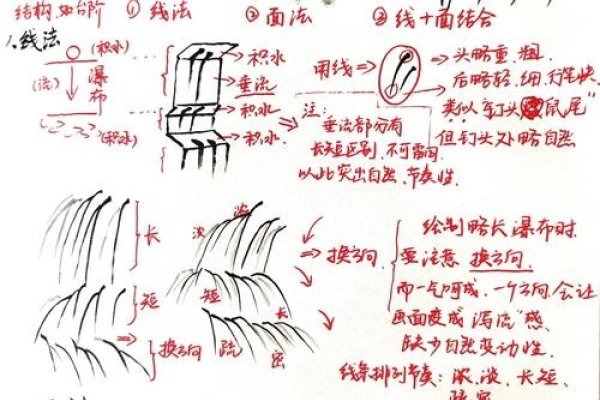 结构如台阶 ① 线法 ② 面法 ③ 线+面结合
1.线法
(积水)
(流)
瀑布
(积水)
积水
垂流
积水
积水
用线
头略重、粗
后略轻、细、行笔快
类似"钉头鼠尾"
但钉头处略自然
注：
垂流部分有
长短区别，不可雷同
以此突出自然、节奏性.
长
短
换方向
淡
浓
短
长
疏
密
换方向
绘制略长瀑布时.
要注意 换方向.
而一气呵成，一个方向会让
画面变成"泻流"感.
缺少自然变动性.
线条排列节奏：浓、淡、长、短、
疏密